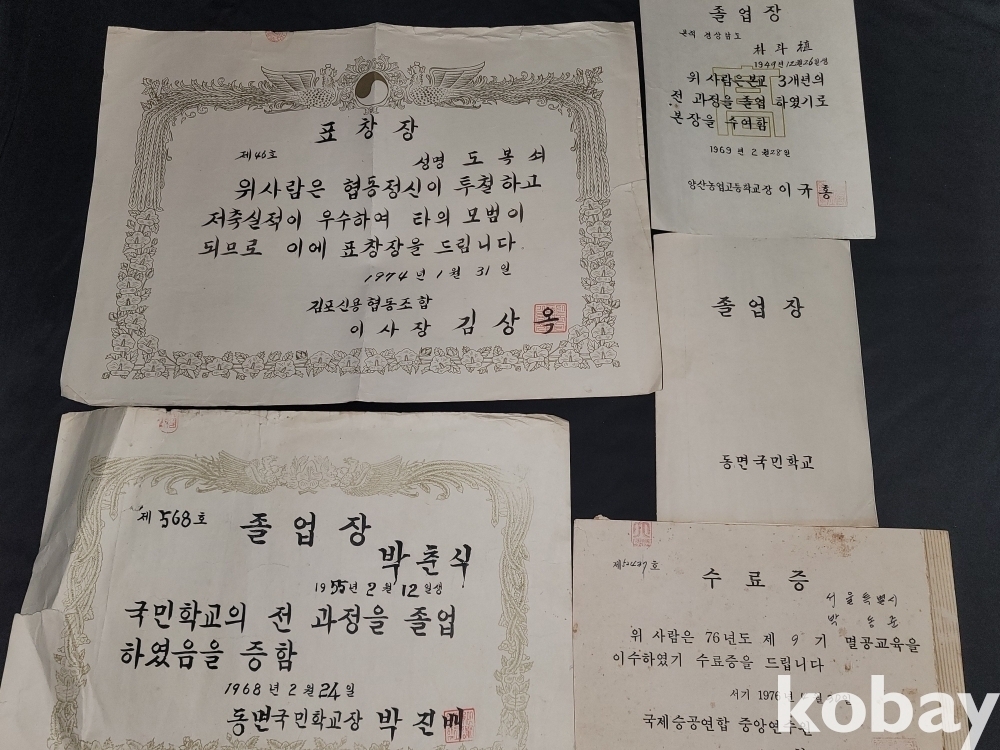 표창장
제46호
성명 도복쇠
위 사람은 협동정신이 투철하고
저축실적이 우수하여 타의 모범이
되므로 이에 표창장을 드립니다.
1974년 1월 31일
김포신용협동조합
이사장 김상옥
졸업장
본적 경상남도
朴斗植
1949년 12월 26일생
위 사람은 본교 3개년의
전 과정을 졸업 하였기로
본장을 수여함
1969년 2월 28일
양산농업고등학교장 이규홍
졸업장
동면국민학교
제568호
졸업장
박춘식
1955년 2월 12일생
국민학교의 전 과정을 졸업
하였음을 증함
1968년 2월 24일
동면국민학교장 박진배
수료증
서울특별시
박동준
위 사람은 76년도 제 9 기 멸공교육을
이수하였기 수료증을 드립니다
서기 1976년
국제승공연합 중앙연수원
kobay